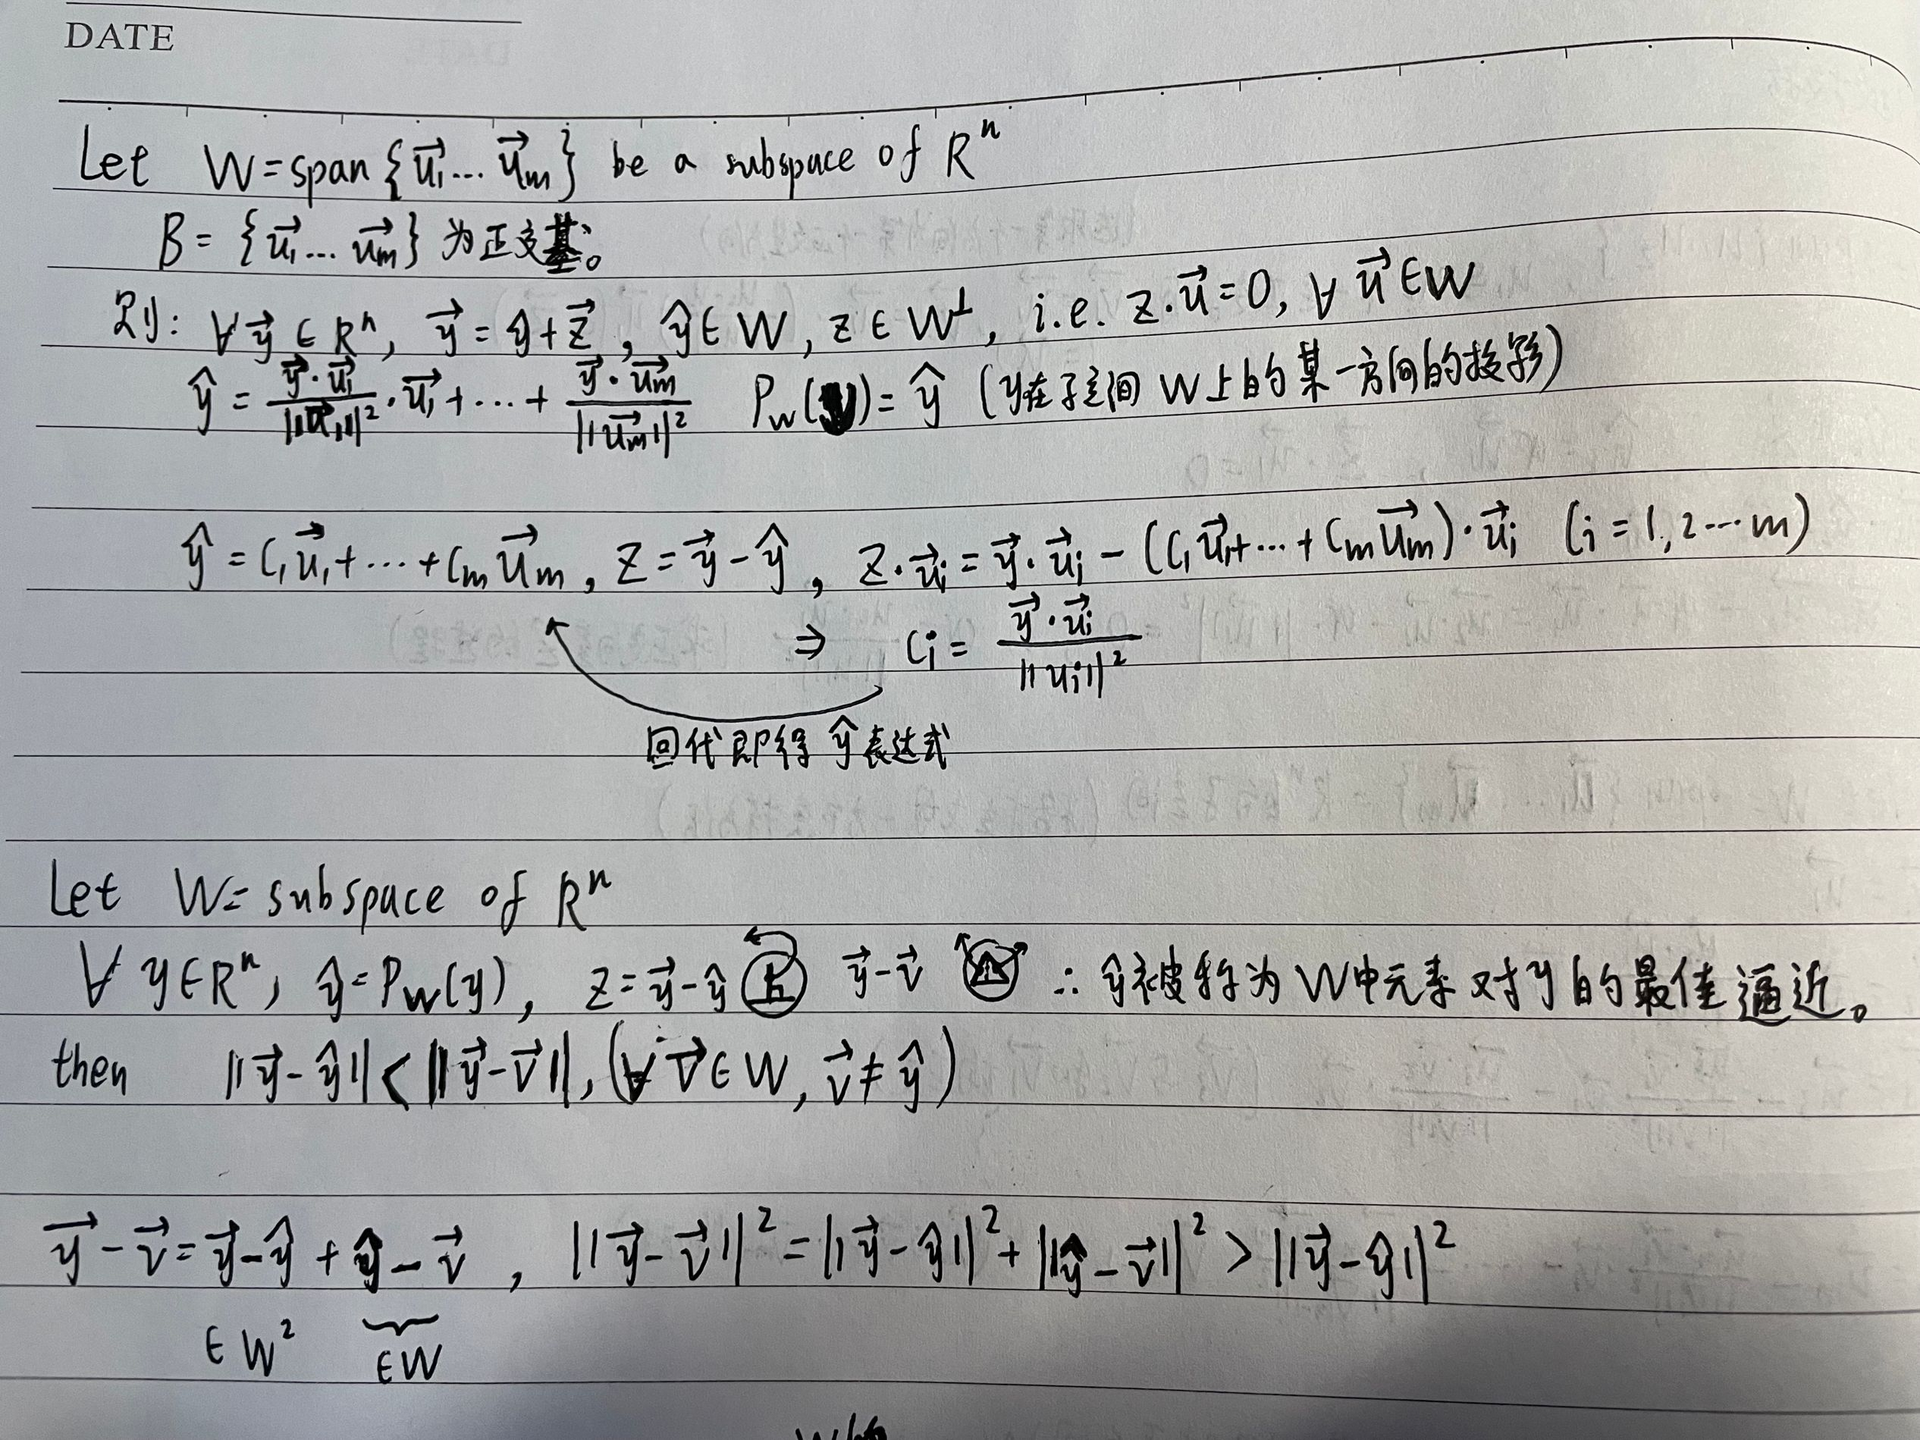 DATE
Let W=span{u⃗₁…u⃗ₘ} be a subspace of Rⁿ
B={u⃗₁…u⃗ₘ}为正交基。
则: ∀y⃗∈Rⁿ, y⃗=ŷ+z⃗, ŷ∈W, z∈W⊥, i.e. z·u⃗=0, ∀u⃗∈W
ŷ = (y⃗·u⃗₁)/||u⃗₁||² · u⃗₁ + … + (y⃗·u⃗ₘ)/||u⃗ₘ||² P_W(y)=ŷ (y在子空间W上的某一方向的投影)
ŷ=C₁u⃗₁+…+Cₘu⃗ₘ, z=y⃗-ŷ, z·u⃗ᵢ=y⃗·u⃗ᵢ-(C₁u⃗₁+…+Cₘu⃗ₘ)·u⃗ᵢ (i=1,2…m)
⇒ Cᵢ = (y⃗·u⃗ᵢ)/||uᵢ||²
回代即得ŷ表达式
Let W= subspace of Rⁿ
∀ y∈Rⁿ, ŷ=P_W(y), z=y⃗-ŷ y⃗-v⃗ ∴ ŷ被称为W中元素对y的最佳逼近。
then ||y⃗-ŷ||<||y⃗-v⃗||, (∀v⃗∈W, v⃗≠ŷ)
y⃗-v⃗=y⃗-ŷ+ŷ-v⃗, ||y⃗-v⃗||²=||y⃗-ŷ||²+||ŷ-v⃗||²>||y⃗-ŷ||²
∈W² ∈W